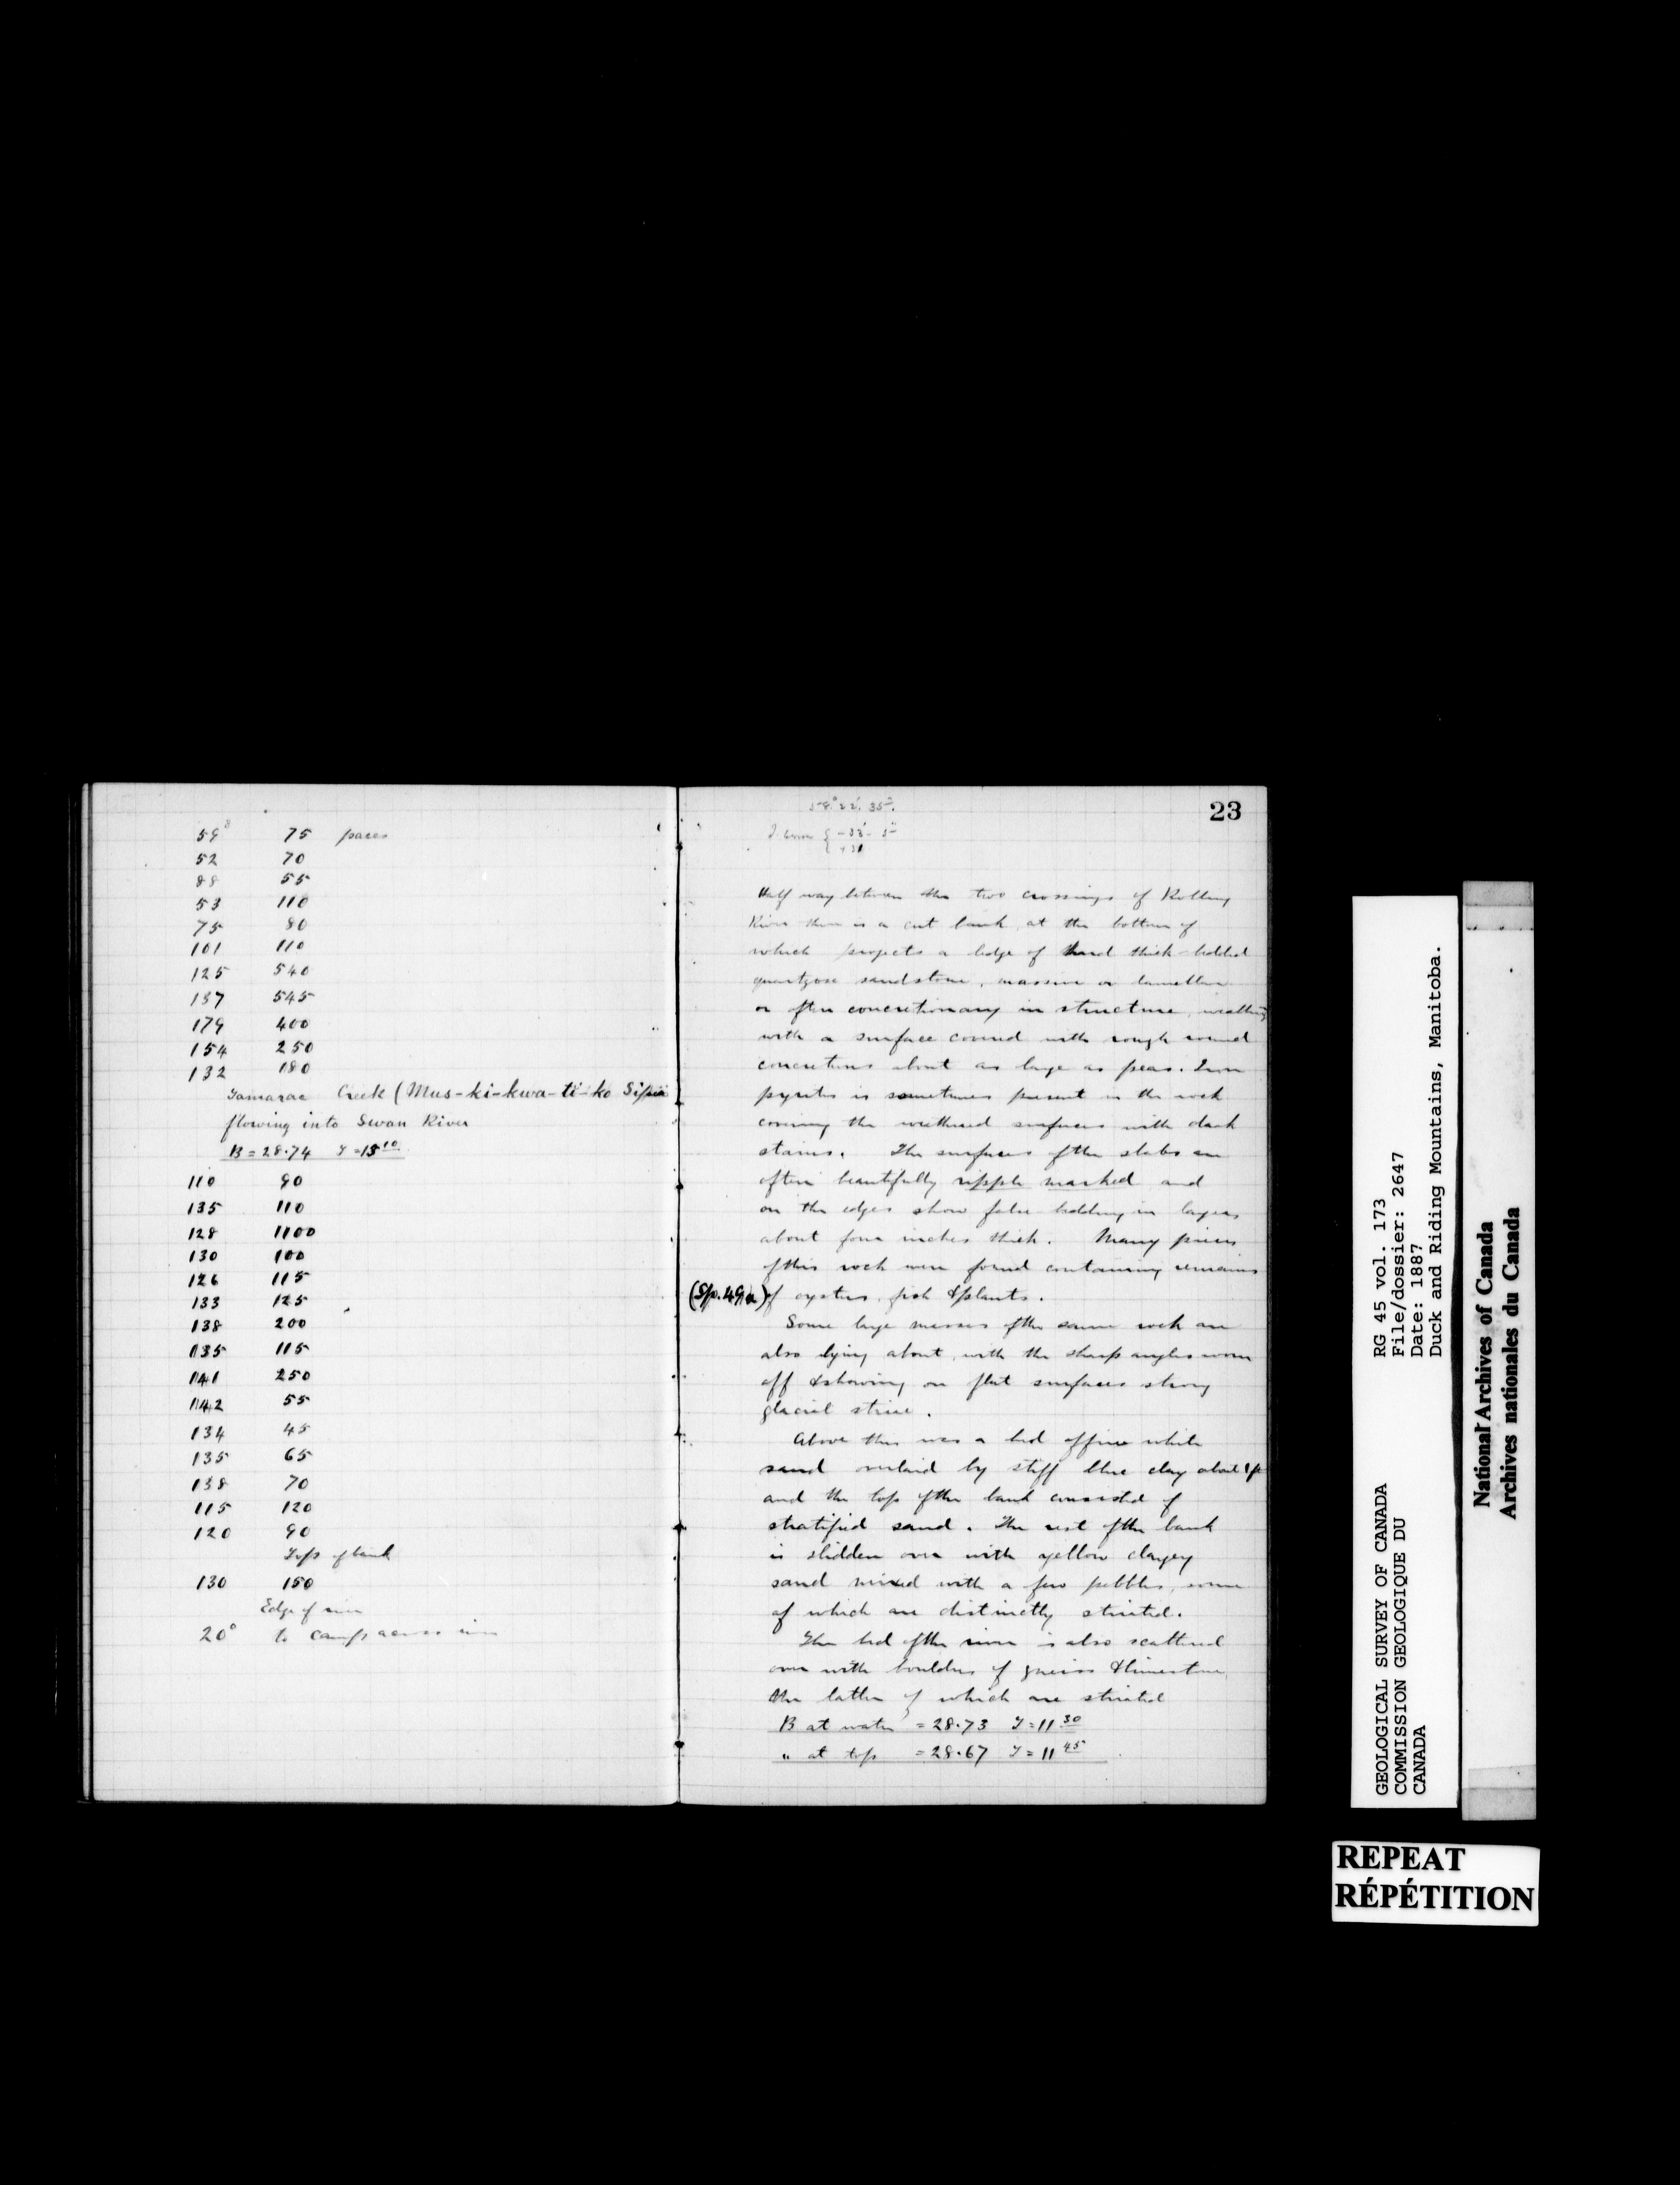 59° 75 paces
52 70
88 55
53 110
75 80
101 110
125 540
137 545
179 400
154 250
132 180
Tamarac Creek (Mus-ki-kwa-ti-ko Sipi
flowing into Swan River
B = 28.74 T = 15 10
110 90
135 110
128 1100
130 100
126 115
133 125
138 200
135 115
141 250
142 55
134 45
135 65
138 70
115 120
120 90
Top of bank
130 150
Edge of river
20° to camp across river
23
Half way between the two crossings of Rolling
River there is a cut bank, at the bottom of
which projects a ledge of hard thick-bedded
quartzose sandstone, massive or lamellar
or often concretionary in structure, weathering
with a surface covered with rough round
concretions about as large as peas. Iron
pyrites is sometimes present in the rock
covering the weathered surfaces with dark
stains. The surfaces of the slabs are
often beautifully ripple marked and
on the edges show false bedding in layers
about four inches thick. Many pieces
of this rock were found containing remains
(Sp. 49a) of oysters, fish & plants.
Some large masses of the same rock are
also lying about, with the sharp angles worn
off & showing on flat surfaces strong
glacial striae.
Above this was a bed of fine white
sand overlaid by stiff blue clay about 1 ft
and the top of the bank consisted of
stratified sand. The rest of the bank
is slidden over with yellow clayey
sand mixed with a few pebbles, some
of which are distinctly striated.
The bed of the river is also scattered
over with boulders of gneiss & limestone
the latter of which are striated
B at water = 28.73 T = 11 30
" at top = 28.67 T = 11 45
GEOLOGICAL SURVEY OF CANADA
COMMISSION GEOLOGIQUE DU
CANADA
RG 45 vol. 173
File/dossier: 2647
Date: 1887
Duck and Riding Mountains, Manitoba.
National Archives of Canada
Archives nationales du Canada
REPEAT
RÉPÉTITION